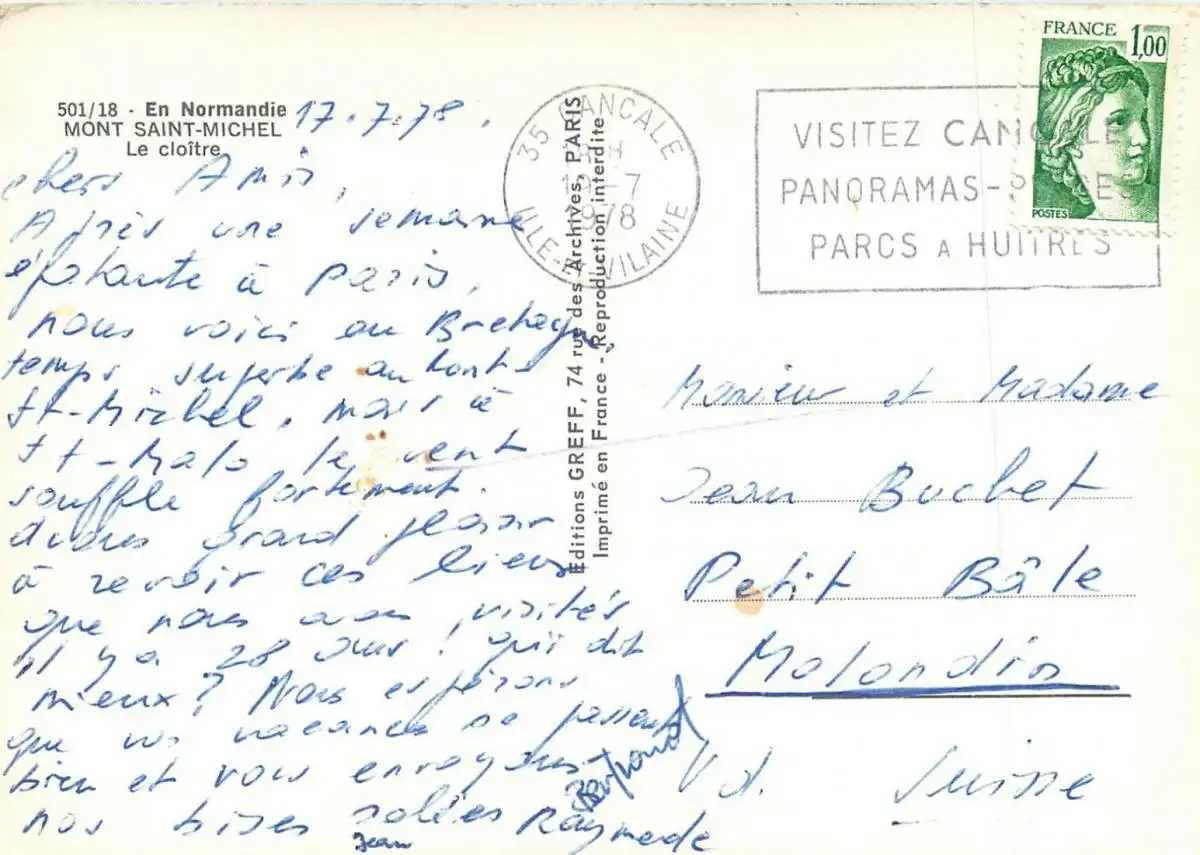 501/18 - En Normandie
MONT SAINT-MICHEL
Le cloître
17.7.78.
chers Amis,
Après une semaine
épatante à Paris,
nous voici en Bretagne,
temps superbe au Mont-
St-Michel, mais à
St-Malo le vent
souffle fortement.
Avons grand plaisir
à revoir ces lieux
que nous avons visités
il y a 28 ans! qui dit
mieux? Nous espérons
que vos vacances se passent
bien et vous envoyons
nos bises salées Raymonde
Jean
Editions GREFF, 74 rue des Archives, PARIS
Imprimé en France - Reproduction interdite
35 CANCALE
-7
1978
ILLE-ET-VILAINE
VISITEZ CANCALE
PANORAMAS-PLAGES
PARCS A HUITRES
FRANCE 1,00
POSTES
Monsieur et Madame
Jean Buchet
Petit Bâle
Molondin
Vd. Suisse